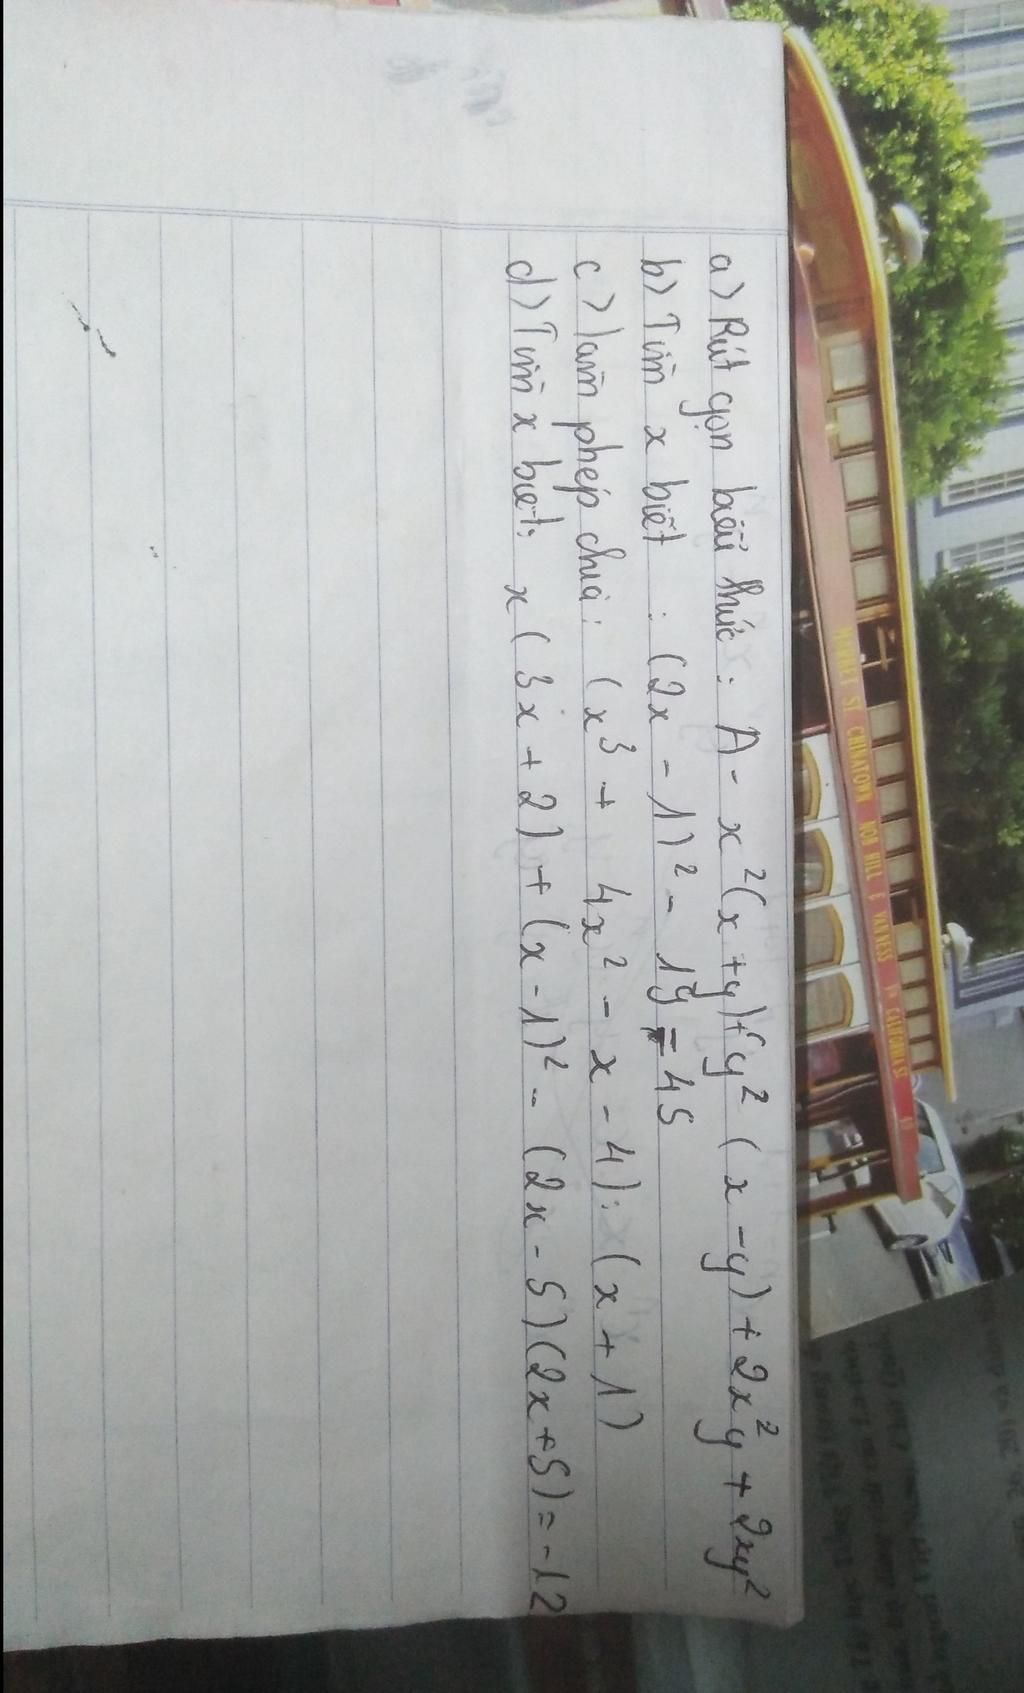 a) Rút gọn biểu thức: A = x²(x + y) + y² (x - y) + 2x²y + 2xy²
b) Tìm x biết : (2x - 1)² - 19 = 45
c) làm phép chia: (x³ + 4x² - x - 4) : (x + 1)
d) Tìm x biết: x (3x + 2) + (x - 1)² - (2x - 5)(2x + 5) = -12
MARKET ST. CHINATOWN NOB HILL & VAN NESS CALIFORNIA ST